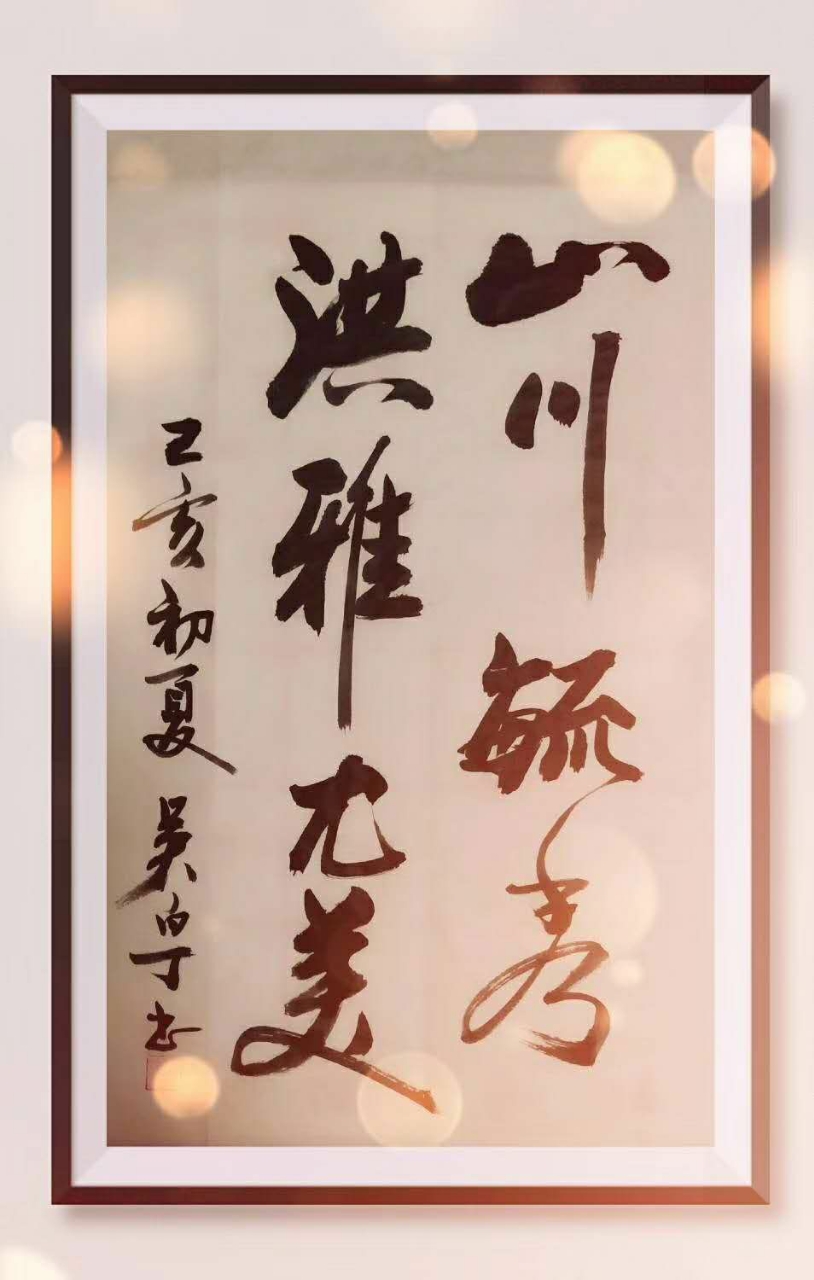 山川毓秀
洪雅尤美
己亥初夏 吴白丁书